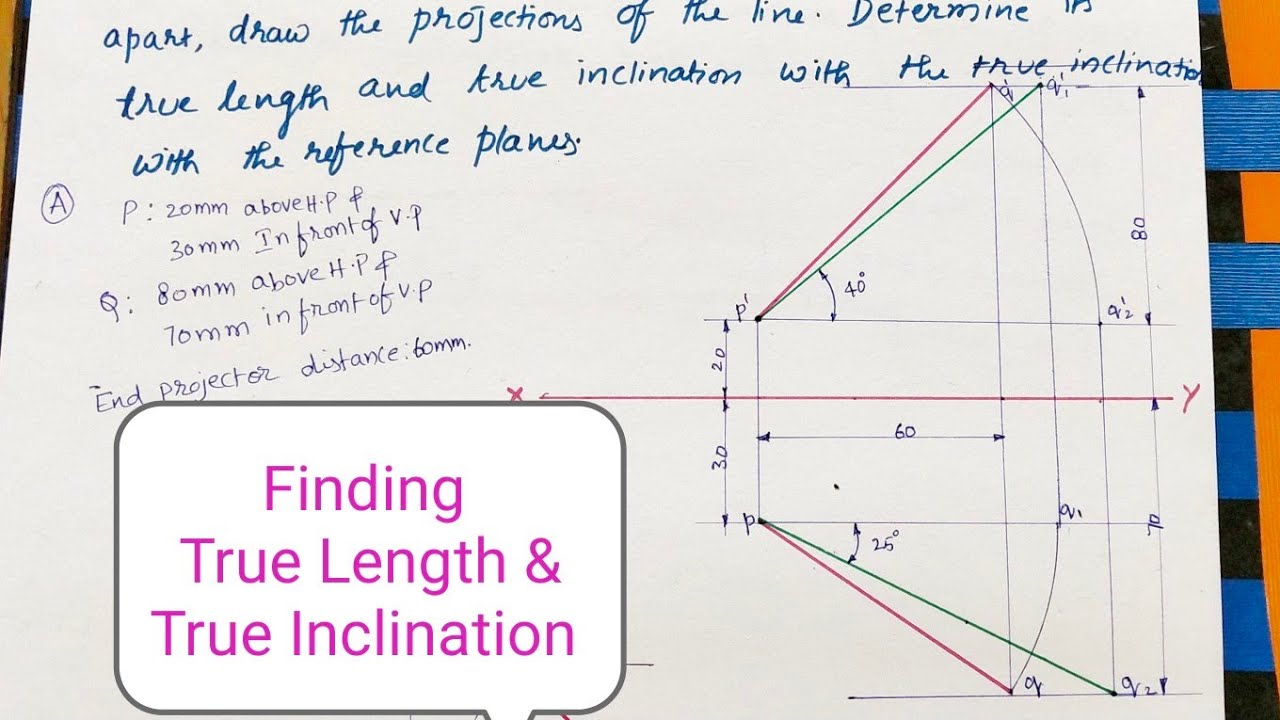 apart, draw the projections of the line. Determine its
true length and true inclination with the true inclination
with the reference planes.
A
P: 20mm above H.P &
30mm In front of V.P
Q: 80mm above H.P &
70mm in front of V.P
End projector distance: 60mm.
Finding
True Length &
True Inclination
q' q'1
80
40°
p' q'2
20
X Y
60
30
p q1
25°
70
q q2